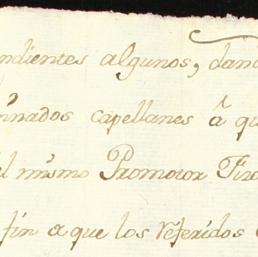 ndientes algunos, dand
nnados capellanes â qu
l mismo Promotor Fisc
fin a que los referidos